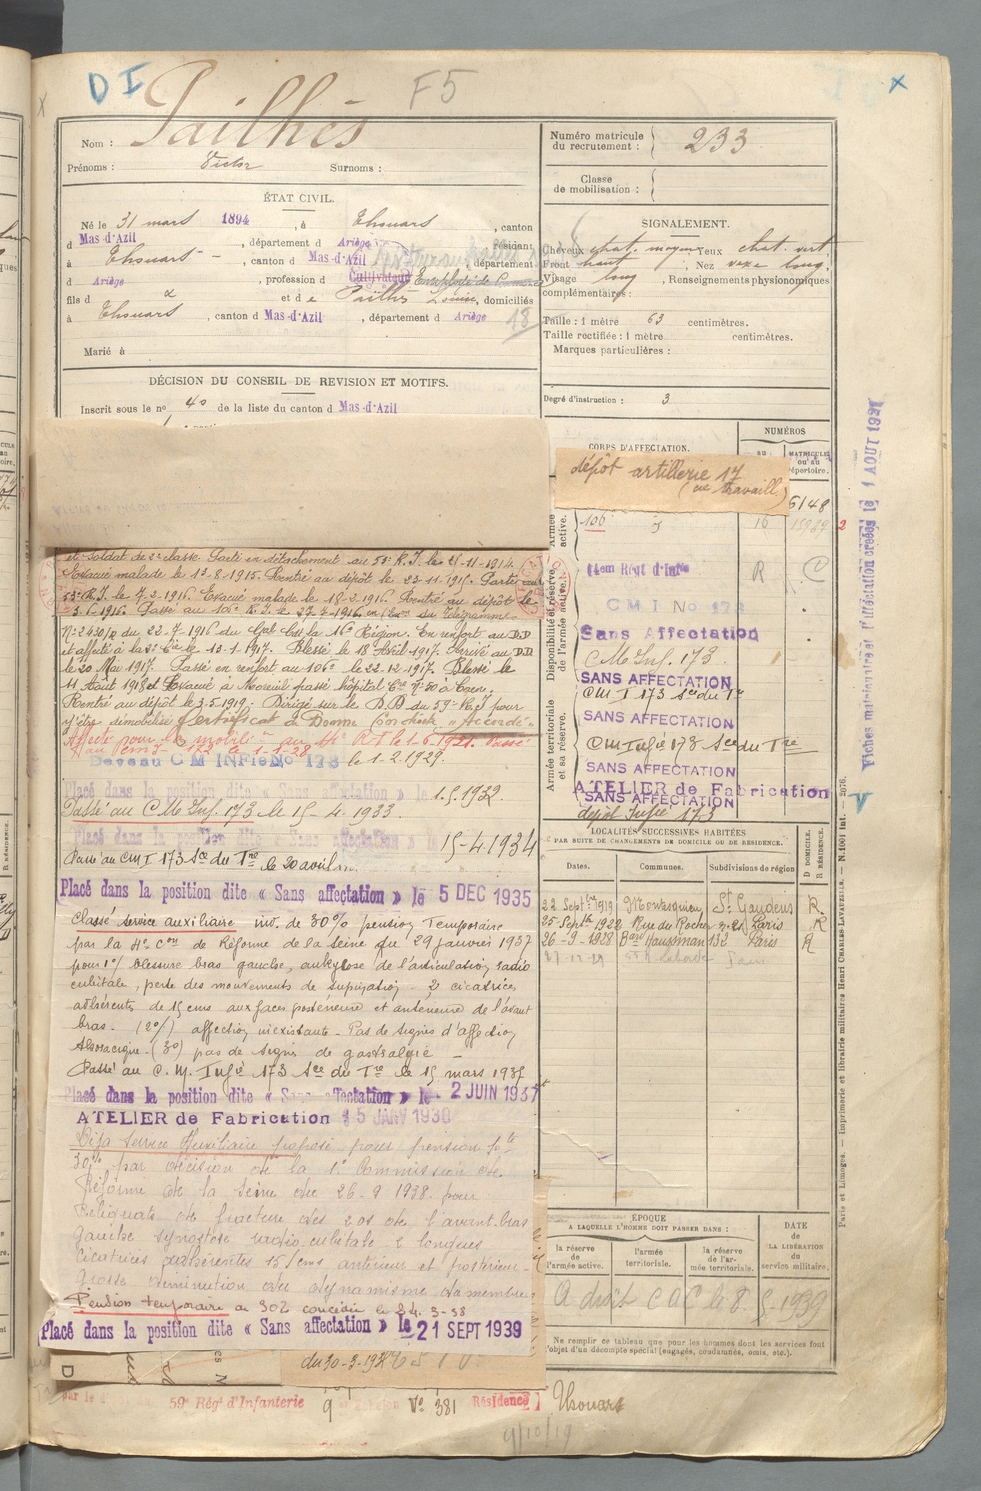 D I
F5
x
Nom : Pailhès
Prénoms : Victor Surnoms :
ÉTAT CIVIL.
Né le 31 mars 1894, à Thouars, canton
d Mas-d'Azil, département d Ariège, résidant
à Thouars, canton d Mas-d'Azil, département
d Ariège, profession d Cultivateur Employé de Commerce
fils d et de Pailhès Louise, domiciliés
à Thouars, canton d Mas-d'Azil, département d Ariège
18
Marié à
DÉCISION DU CONSEIL DE REVISION ET MOTIFS.
Inscrit sous le no 40 de la liste du canton d Mas-d'Azil
Numéro matricule
du recrutement : 233
Classe
de mobilisation :
SIGNALEMENT.
Cheveux chat. moyen Yeux chat. vert
Front haut, Nez vexe long.
Visage long, Renseignements physionomiques
complémentaires :
Taille : 1 mètre 63 centimètres.
Taille rectifiée : 1 mètre centimètres.
Marques particulières :
Degré d'instruction : 3
et soldat de 2e classe. Parti en détachement au 53e R.I. le 21-11-1914.
Evacué malade le 13-8-1915. Rentré au dépôt le 23-11-1915. Parti au
53e R.I. le 7-2-1916. Evacué malade le 18-2-1916. Rentré au dépôt le
3-6-1916. Passé au 106e R.I. le 27-7-1916 en du Télégramme
No 2430/D du 22-7-1916 du Gal Ct la 16e Région. En renfort au D.D
et affecté à la Cie le 13-1-1917. Blessé le 18 Avril 1917. Arrivé au D.D
le 20 Mai 1917. Passé en renfort au 106e le 22-12-1917. Blessé le
11 Août 1918 et Evacué à Moreuil passé hôpital Cre No 50 à Caen.
Rentré au dépôt le 3-5-1919. Dirigé sur le D.D du 59e Regt pour
y être démobilisé Certificat de Bonne Conduite "Accordé"
Affecté pour la mobilon au R I le 1-6-1921. Passé
au CMI 173 le 1-1-28
Devenu C M INFie No 173 le 1.2.1929.
Placé dans la position dite « Sans affectation » le 1.5.1932.
Passé au C M Inf. 173 le 15-4-1933.
Placé dans la position dite « Sans affectation » le 15-4-1934
Passé au CM I 173 Sce du Tre le 20 avril
Placé dans la position dite « Sans affectation » le 5 DEC 1935
Classé service auxiliaire inv. de 30% pension Temporaire
par la 4e Con de Réforme de la Seine du 29 janvier 1937
pour 1o) blessure bras gauche, ankylose de l'articulation radio
cubitale, perte des mouvements de supination - 2 cicatrices
adhérentes de 15 cms aux faces postérieure et antérieure de l'avant
bras - (2o) affection inexistante - Pas de signes d'affection
thoracique - (3o) pas de signes de gastralgie -
Passé au C. M. Infie 173 Sce du Tre le 15 mars 1937
Placé dans la position dite « Sans affectation » le 2 JUIN 1937
ATELIER de Fabrication 5 JANV 1938
Déja service Auxiliaire proposé pour pension Tre
30% par décision de la 1e Commission de
Réforme de la Seine du 26-9 1938 pour
Reliquats de fracture des 2 os de l'avant-bras
gauche synostose radio cubitale 2 longues
cicatrices adhérentes 15/cms antérieur et postérieur -
Grosse diminution du dynamisme du membre
Pension temporaire de 30% concédée le 24-3-38
Placé dans la position dite « Sans affectation » le 21 SEPT 1939
du 30-3-19
59e Rég' d'Infanterie 9 Echelon Vo 381 Résidence Thouars
9/10/19
CORPS D'AFFECTATION.
NUMÉROS
au
MATRICULE
ou au
répertoire.
dépôt artillerie 17
(cie travaill)
6148
Armée
active.
106 16 15989
2
Disponibilité et réserve
de l'armée active.
14em Régt d'Infie R C
C M I No 173
Sans Affectation
C M Inf. 173.
SANS AFFECTATION
CM I 173 Sce du Tre
Armée territoriale
et sa réserve.
SANS AFFECTATION
CM Infie 173 Sce du Tre
SANS AFFECTATION
ATELIER de Fabrication
SANS AFFECTATION
dépôt Infie 173
LOCALITÉS SUCCESSIVES HABITÉES
PAR SUITE DE CHANGEMENTS DE DOMICILE OU DE RÉSIDENCE.
Dates. Communes. Subdivisions de région
D DOMICILE.
R RÉSIDENCE.
22 Septbre 1919 Montesquieu St Gaudens R.
25 Septbre 1922 Rue du Rocher n. 21 Paris R
26-9-1928 Bard Haussman 132 Paris R
ÉPOQUE
A LAQUELLE L'HOMME DOIT PASSER DANS :
la réserve
de
l'armée active.
l'armée
territoriale.
la réserve
de l'ar-
mée territoriale.
DATE
de
LA LIBÉRATION
du
service militaire.
A droit C d C le 8. 5. 1939
Ne remplir ce tableau que pour les hommes dont les services font
l'objet d'un décompte spécial (engagés, condamnés, omis, etc.).
Fiches matriculaire et d'affectation créées le 1 AOUT 1921
Paris et Limoges. — Imprimerie et librairie militaires Henri CHARLES-LAVAUZELLE. — N. 1001 int. — 2076.